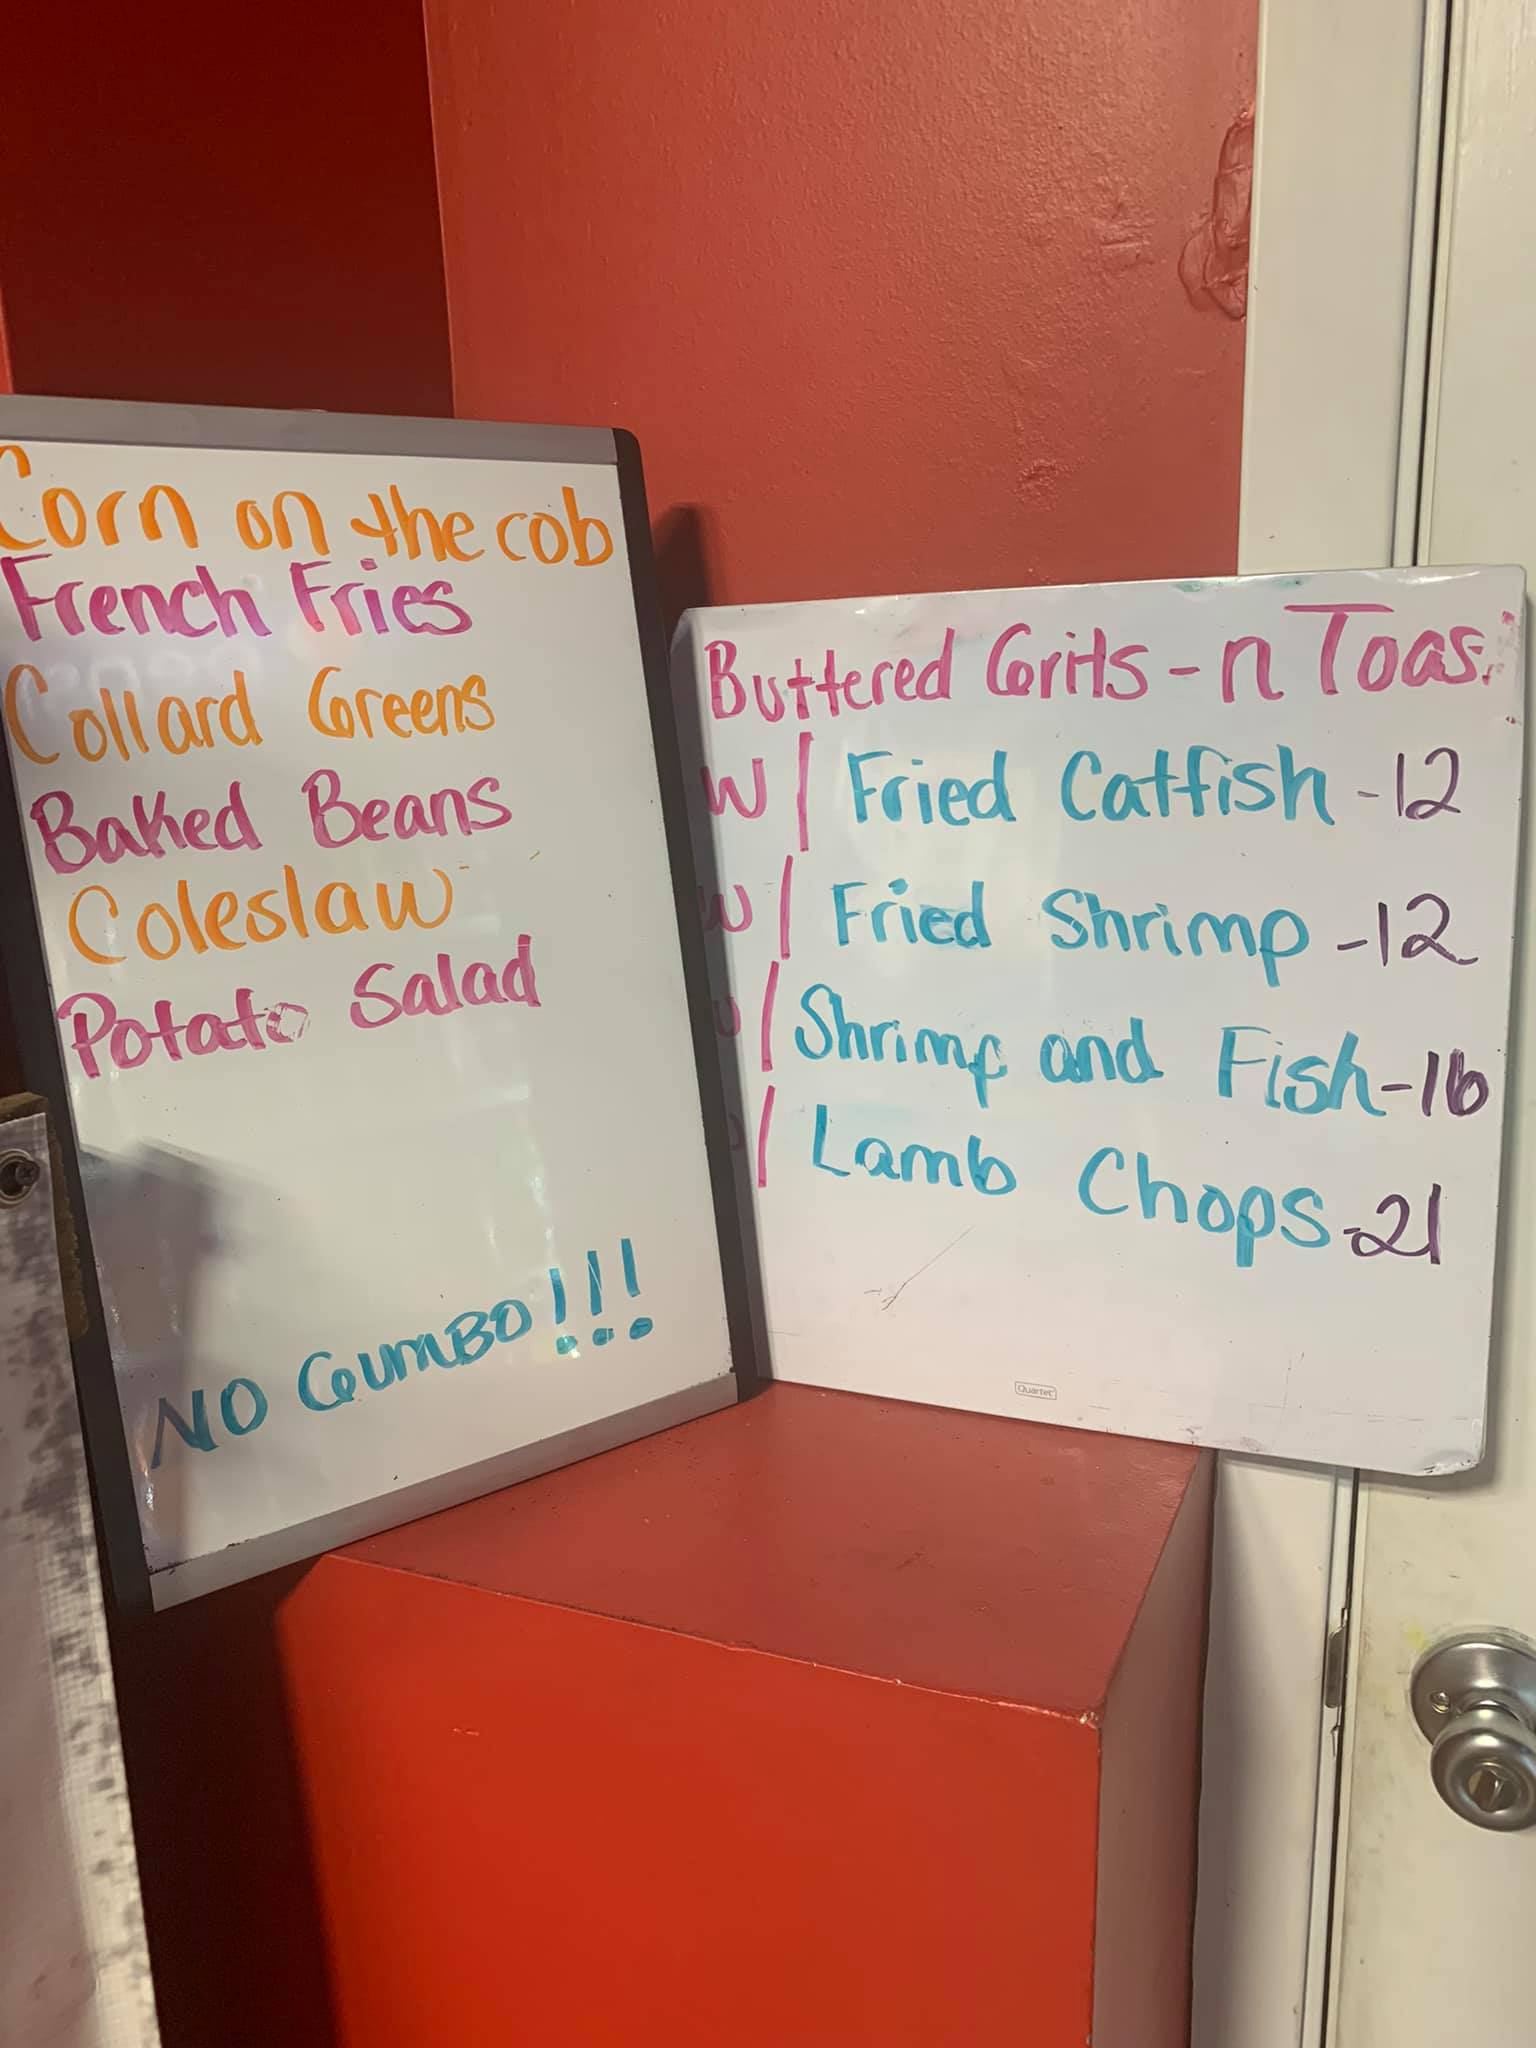 Corn on the cob
French Fries
Collard Greens
Baked Beans
Coleslaw
Potato Salad
NO GUMBO!!!
Buttered Grits-n Toas
W/ Fried Catfish -12
W/ Fried Shrimp -12
/ Shrimp and Fish-16
/ Lamb Chops-21
Quartet